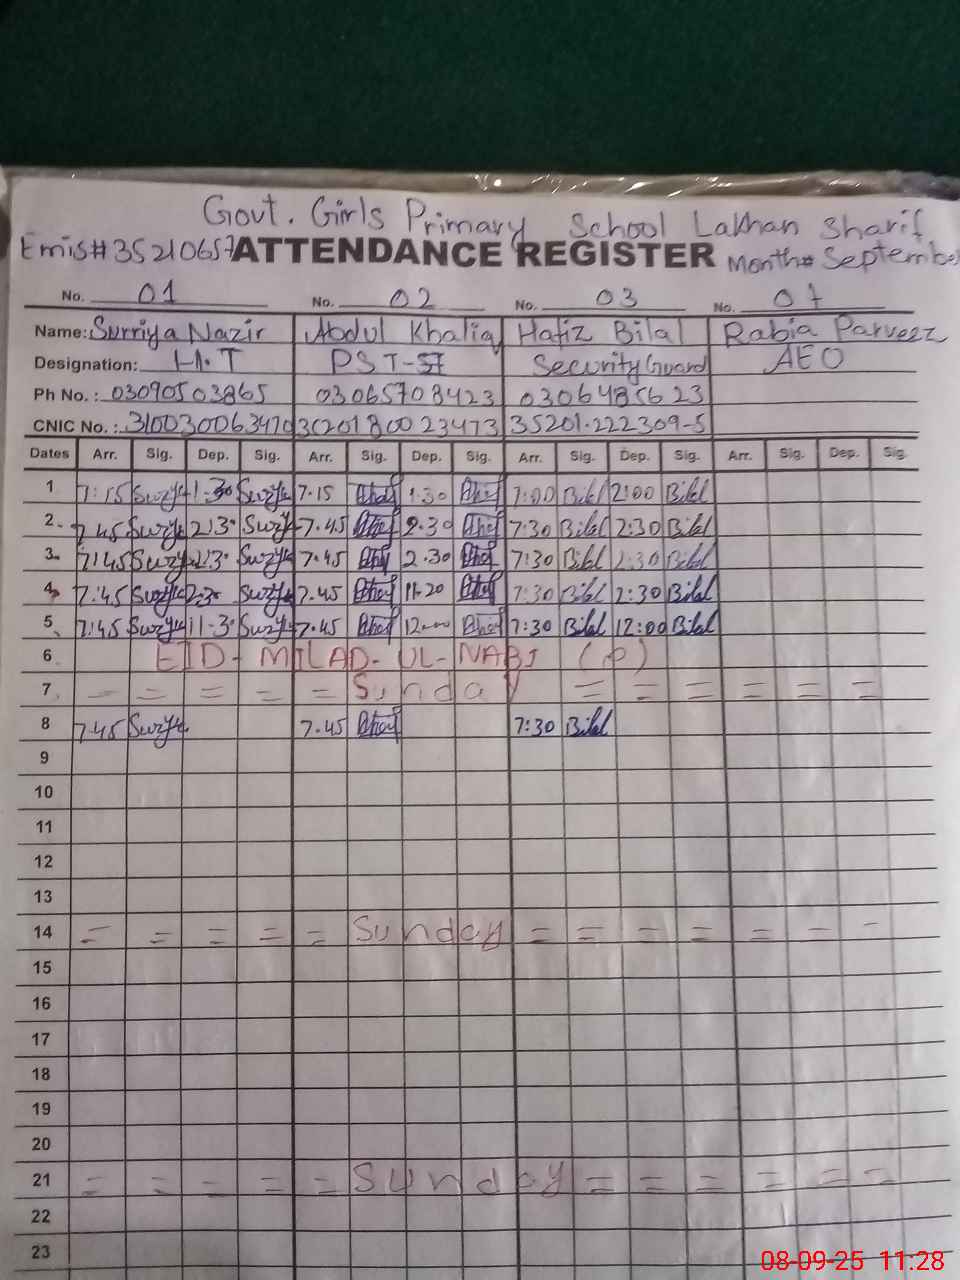 Govt. Girls Primary School Lakhan Sharif
Emis# 35210657 ATTENDANCE REGISTER Month# September
No. 01 No. 02 No. 03 No. 07
Name: Surriya Nazir Abdul Khaliq Hafiz Bilal Rabia Parveez
Designation: H.T PST- Security Guard AEO
Ph No. : 03090503865 03065708423 0306485623
CNIC No. : 3100300634 35201800 23473 35201-222309-5
Dates Arr. Sig. Dep. Sig. Arr. Sig. Dep. Sig. Arr. Sig. Dep. Sig. Arr. Sig. Dep. Sig.
1 7:15 1:30 7.15 1.30 7:00 Bilal 2:00 Bilal
2 7.45 2:3 7.45 2.30 7:30 Bilal 2:30 Bilal
3 7:45 2:3 7.45 2.30 7:30 Bilal 2:30 Bilal
4 7:45 2:3 7.45 11.20 7:30 Bilal 2:30 Bilal
5 7:45 11:3 7.45 12 7:30 Bilal 12:00 Bilal
6 EID- MILAD- UL- NABI (P)
7 - = = = = Sunday = = = = = =
8 7.45 7.45 7:30 Bilal
9
10
11
12
13
14 = = = = = Sunday = = = = = - -
15
16
17
18
19
20
21 = = = = = Sunday = = = = = = =
22
23
08-09-25 11:28